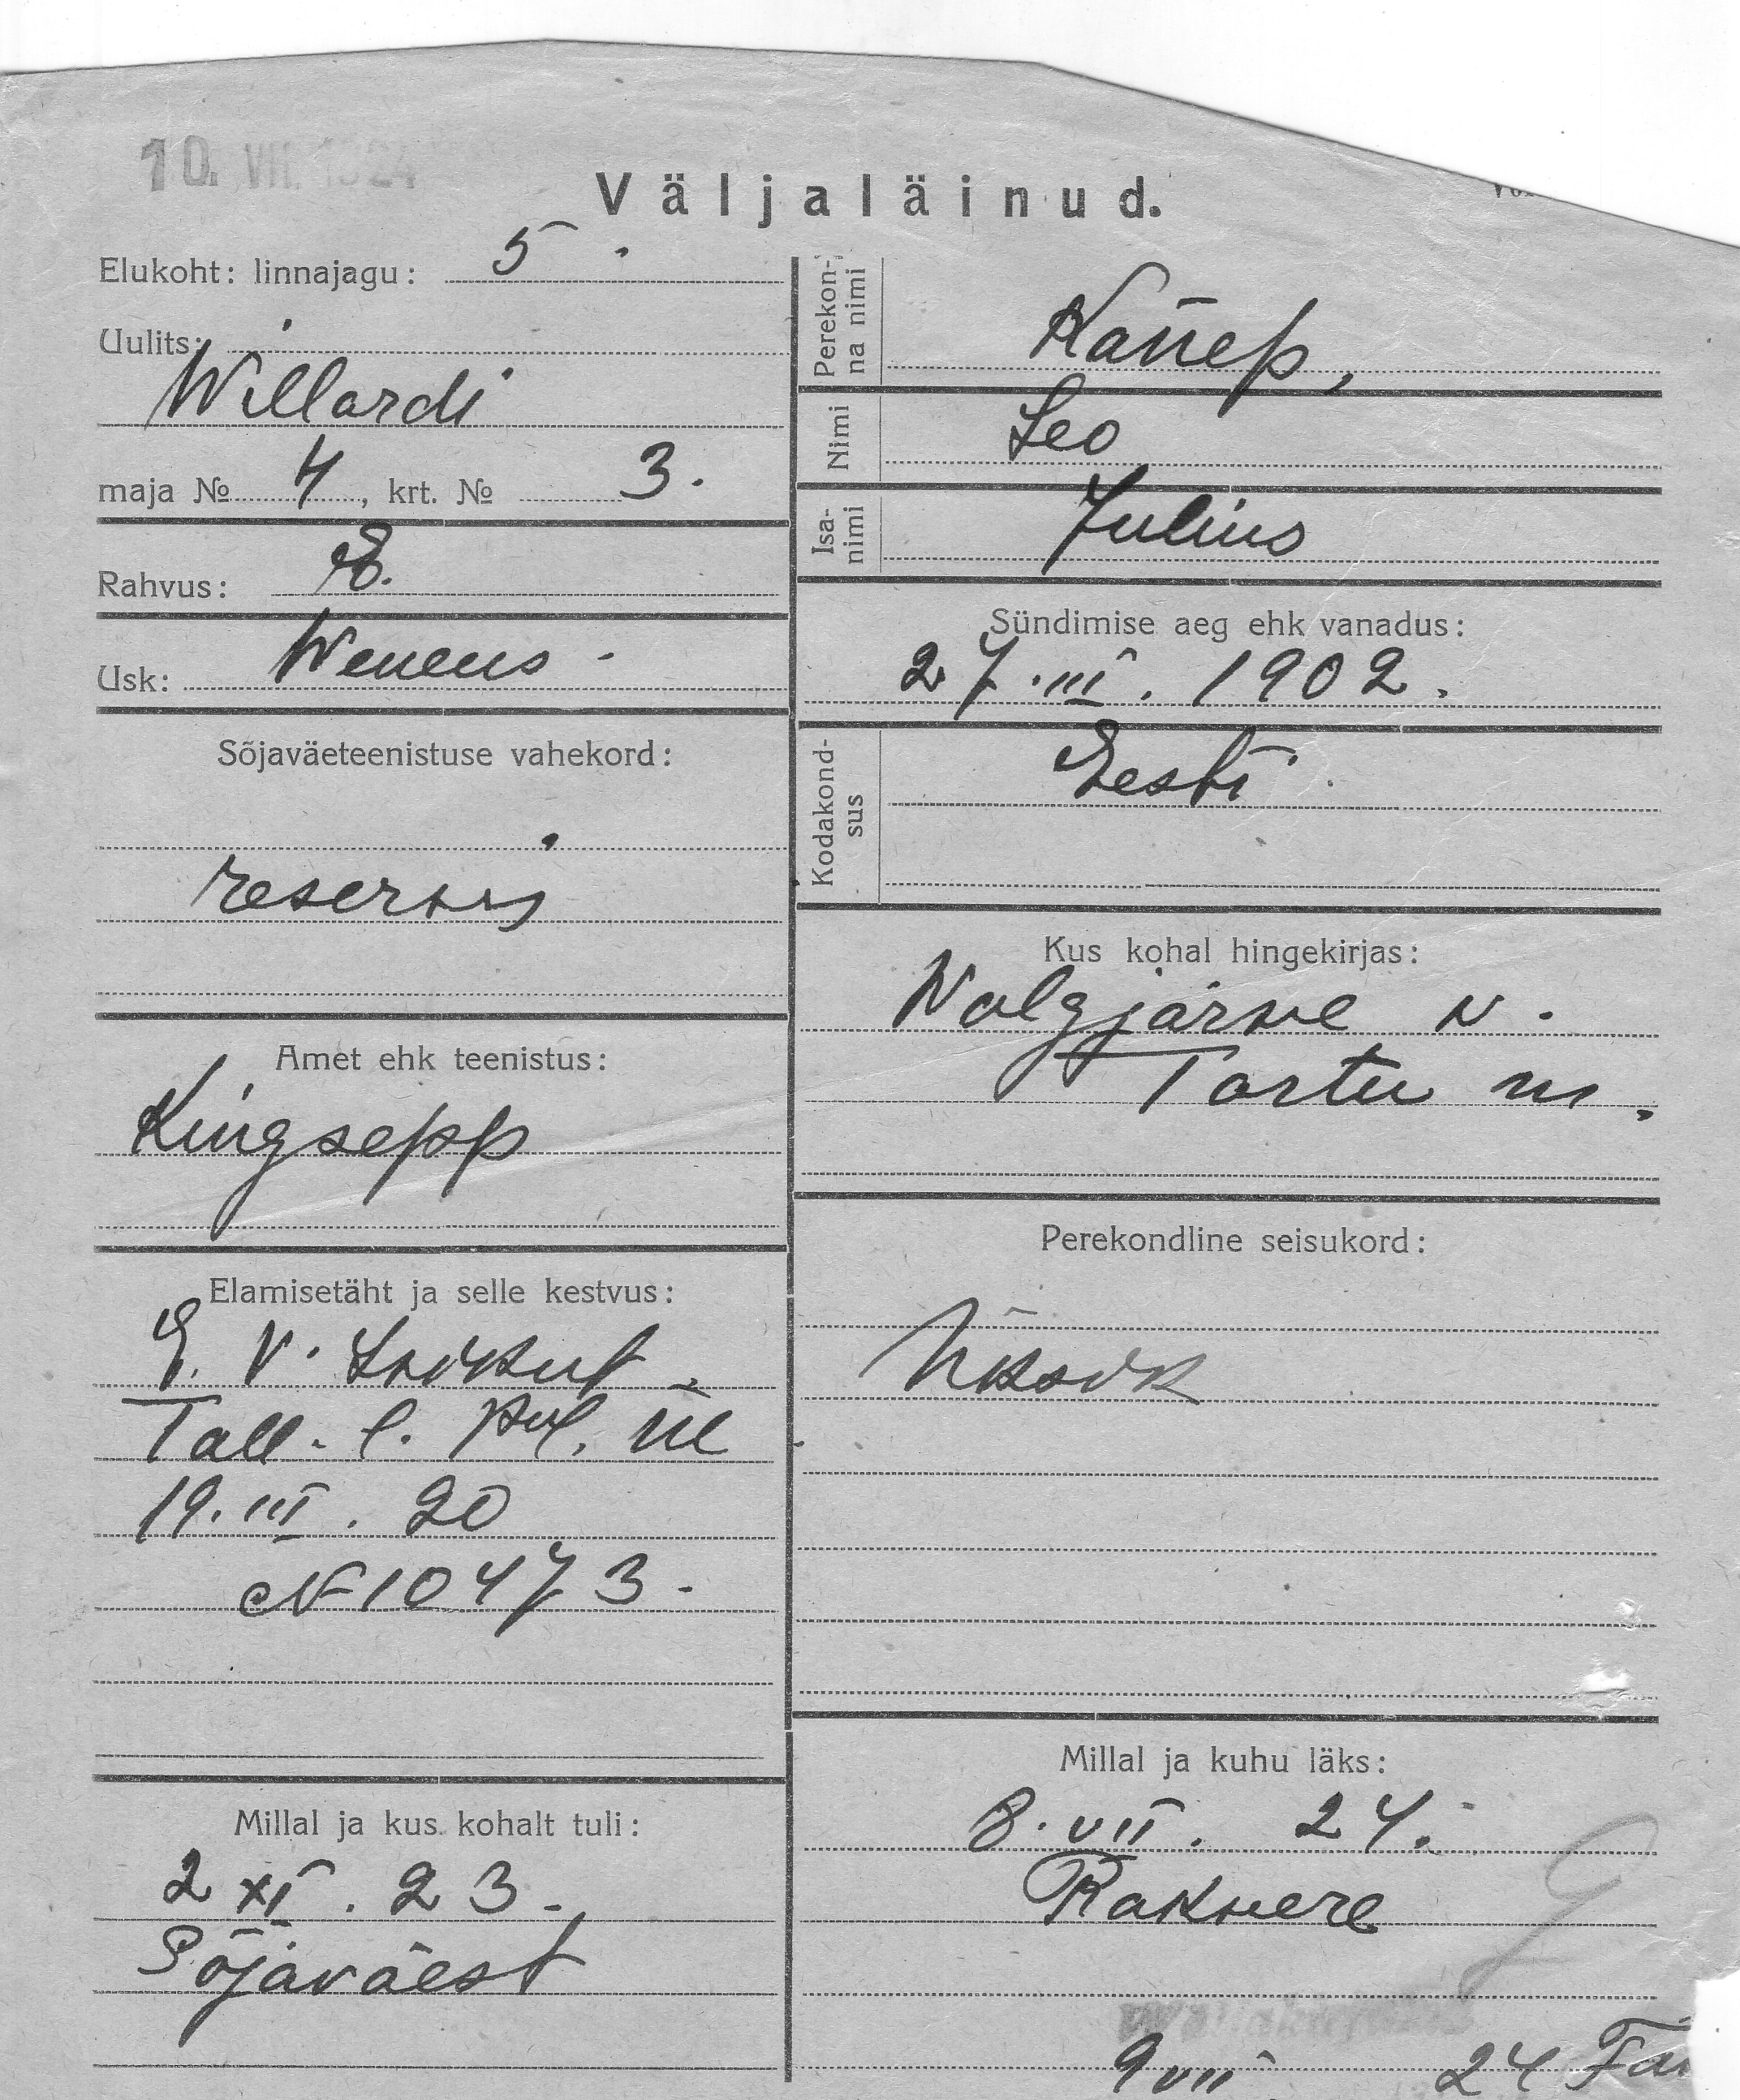 10. VII. 1924
Väljaläinud.
Elukoht: linnajagu: 5.
Uulits:
Willardi
maja № 4, krt. № 3.
Rahvus: E.
Usk:
Sõjaväeteenistuse vahekord:
reservis
Amet ehk teenistus:
Kingsepp
Elamisetäht ja selle kestvus:
E. V.
Tall. l. ül
19. III. 20
N 10473.
Millal ja kus kohalt tuli:
2 XI. 23.
Sõjaväest
Perekonna nimi
Kañep,
Nimi
Leo
Isanimi
Julius
Sündimise aeg ehk vanadus:
27. III. 1902.
Kodakondsus
Eesti
Kus kohal hingekirjas:
Walgjärwe w.
Tartu m.
Perekondline seisukord:
Üksik
Millal ja kuhu läks:
8. VII. 24.
Rakwere
9 VII 24